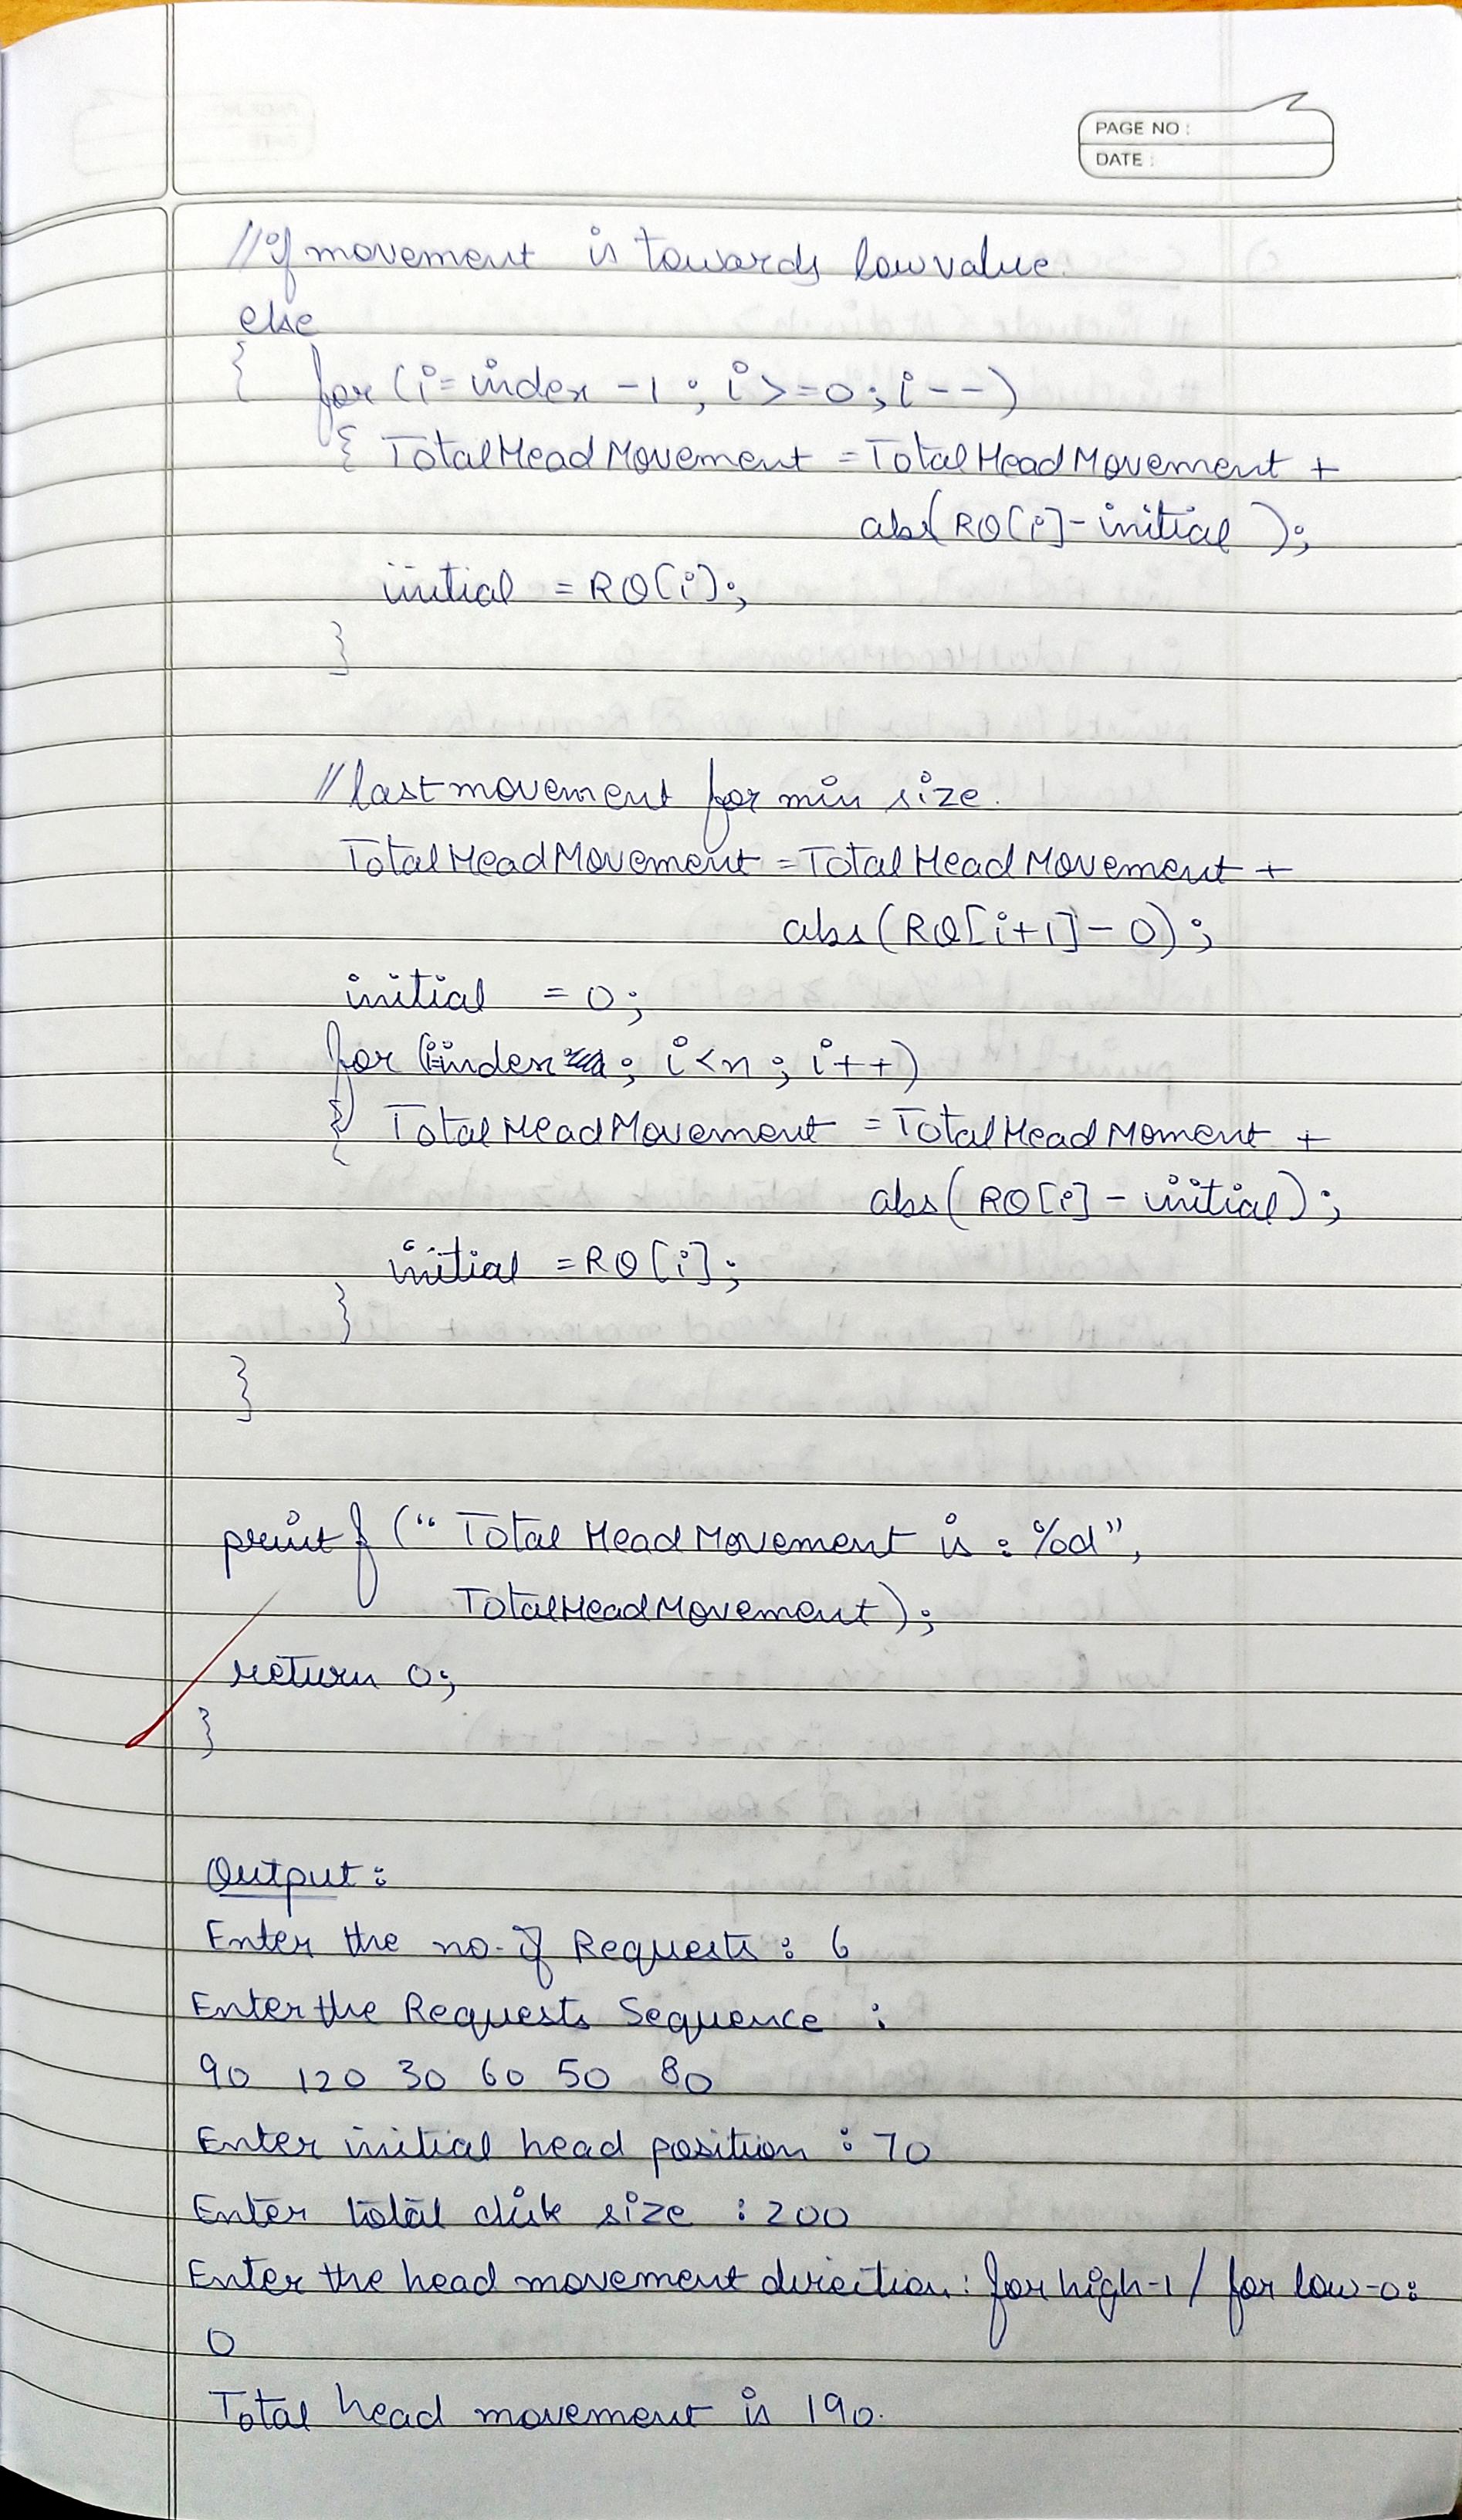 PAGE NO :
DATE :
//if movement is towards low value.
else
{ for (i=index -1 ; i >=0 ; i--)
{ TotalHeadMovement = TotalHeadMovement +
abs(RQ[i]-initial );
initial = RQ[i];
}
//last movement for min size.
TotalHeadMovement = TotalHeadMovement +
abs(RQ[i+1]-0);
initial = 0;
for (i=index ; i<n ; i++)
{ TotalHeadMovement = TotalHeadMoment +
abs(RQ[i] - initial);
initial = RQ[i];
}
}
printf (" Total HeadMovement is : %d",
TotalHeadMovement);
return 0;
}
Output :
Enter the no. of Requests : 6
Enter the Requests Sequence :
90 120 30 60 50 80
Enter initial head position : 70
Enter total disk size : 200
Enter the head movement direction : for high-1 / for low-0:
0
Total head movement is 190.